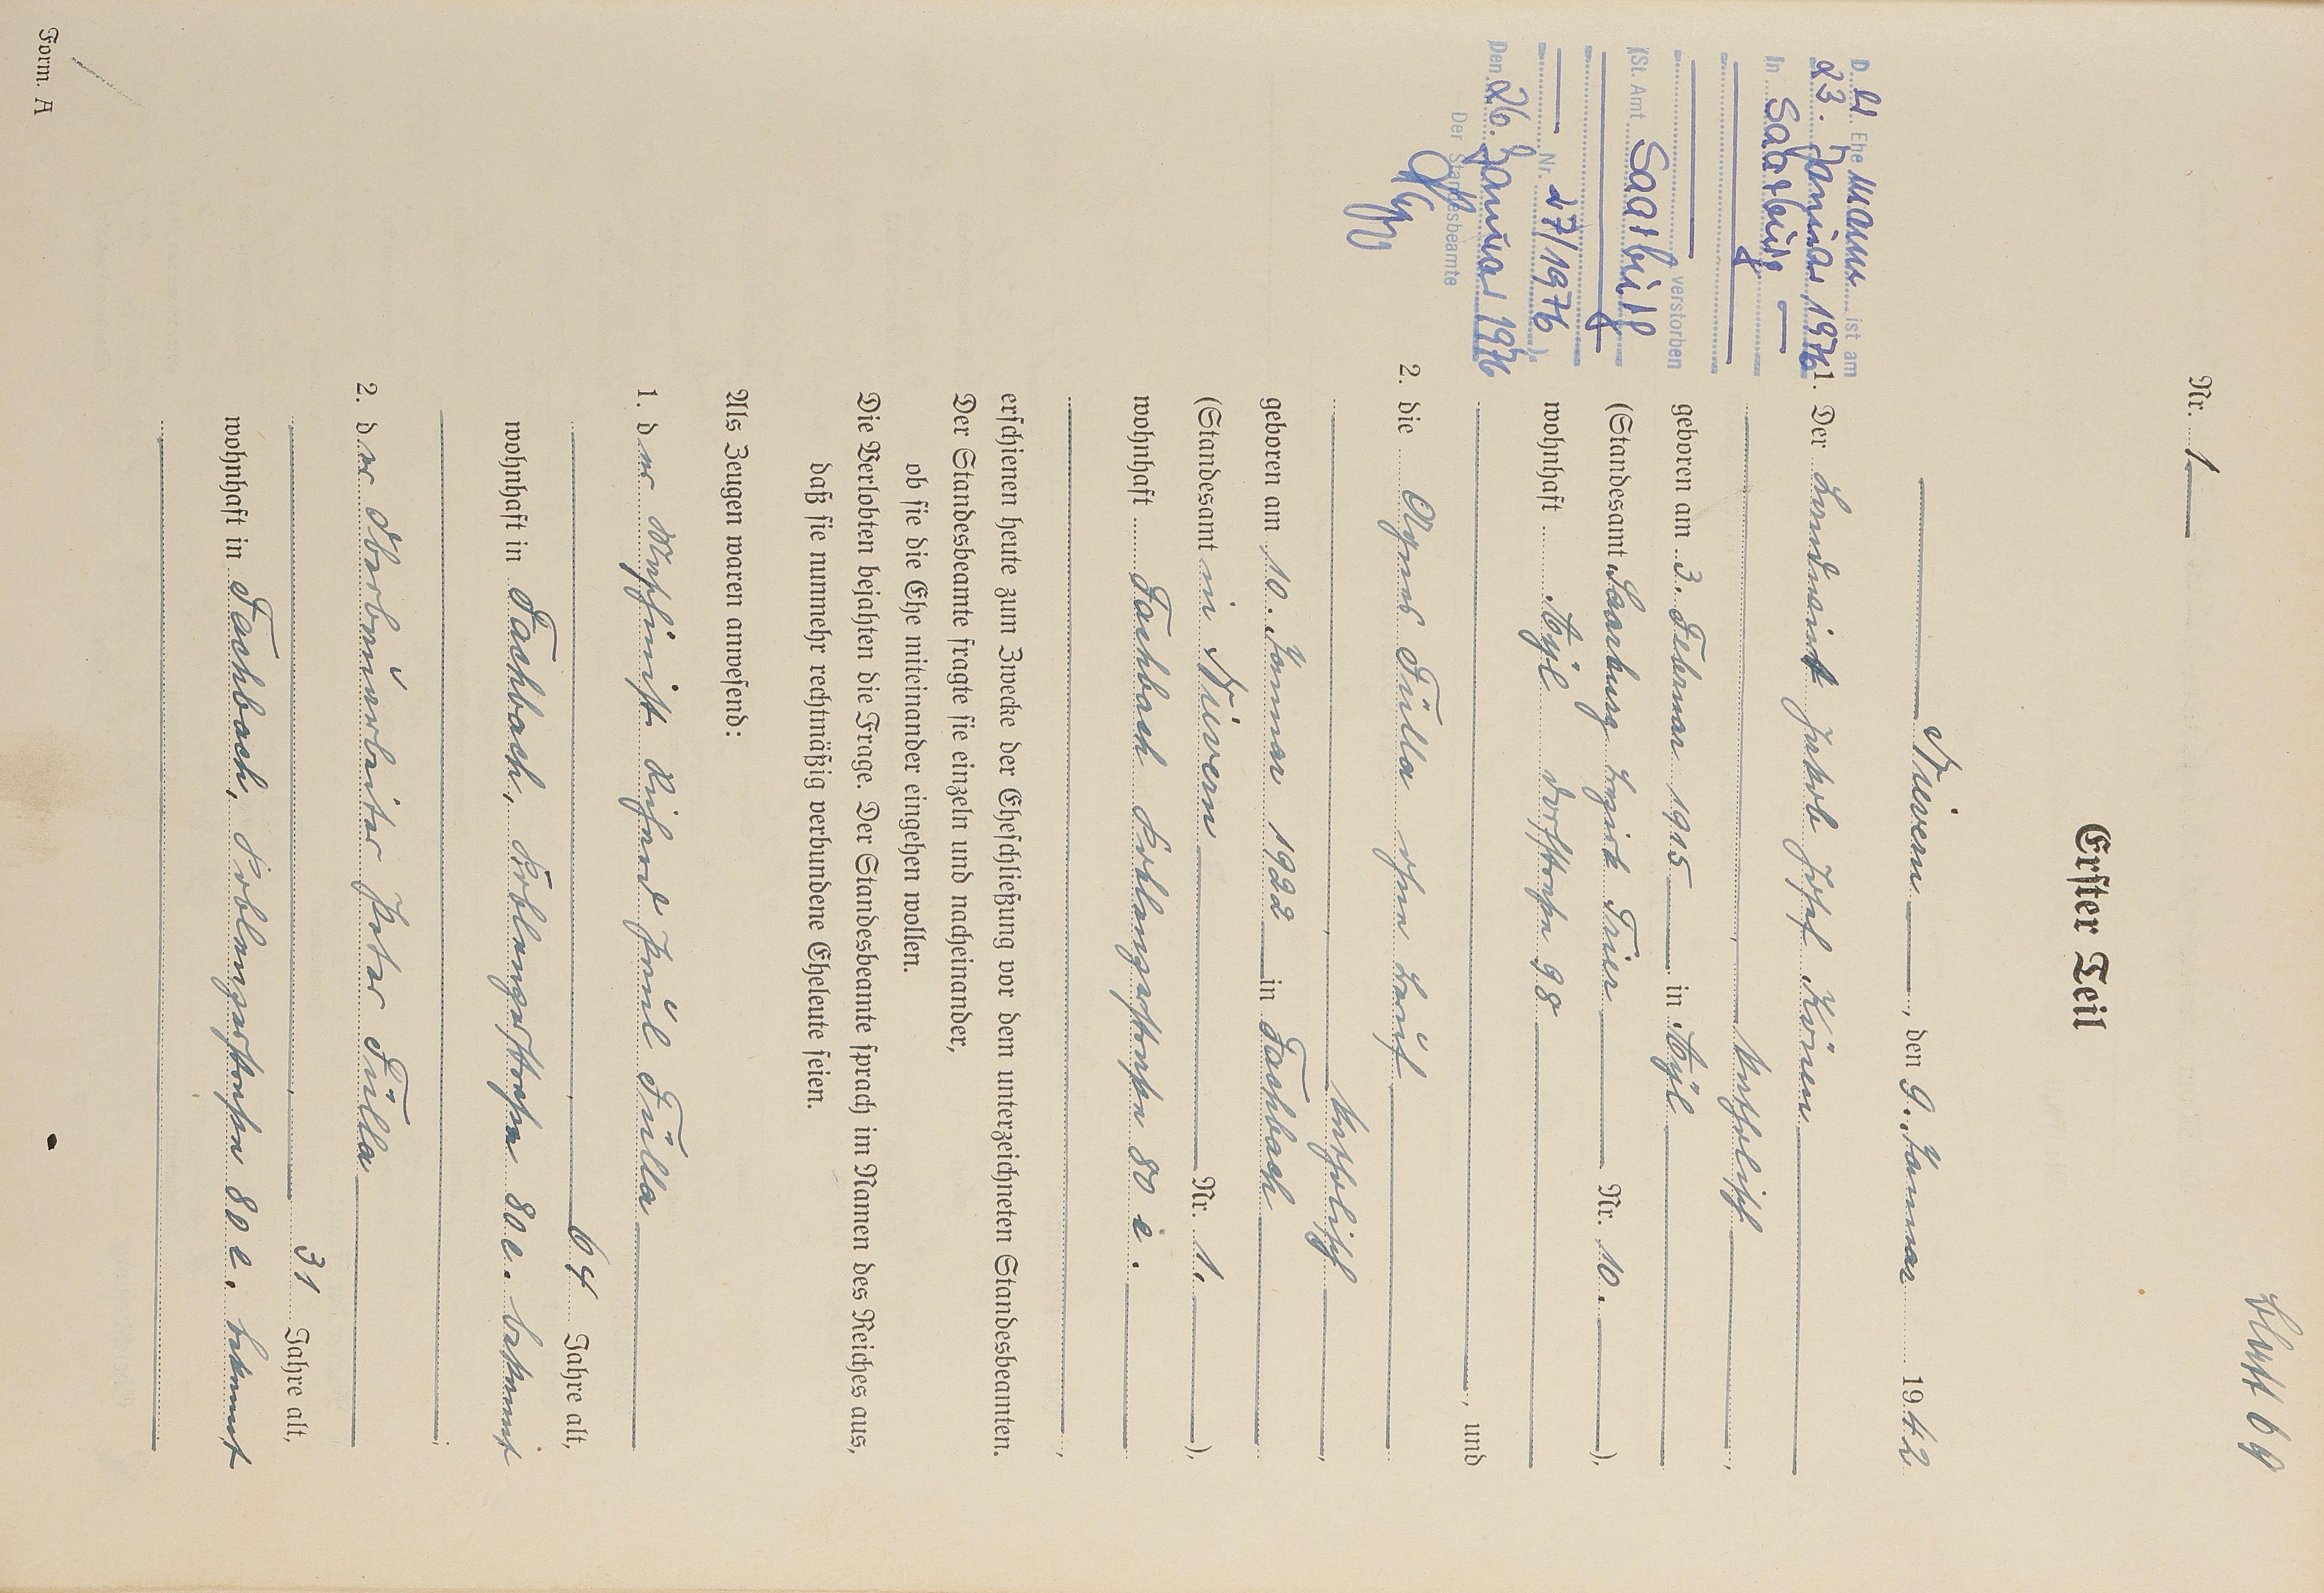 Blatt 69
Nr. 1
Erster Teil
Nievern, den 9. Januar 1942
1. Der Landwirt Jakob Josef Könen
katholisch,
geboren am 3. Februar 1915 in Ayl
(Standesamt Saarburg Bezirk Trier Nr. 10.),
wohnhaft Ayl Dorfstraße 98
, und
2. die Agnes Fülla ohne Beruf
, katholisch,
geboren am 10. Januar 1922 in Fachbach
(Standesamt in Nievern Nr. 1.),
wohnhaft Fachbach Koblenzerstraße 80 e.
,
erschienen heute zum Zwecke der Eheschließung vor dem unterzeichneten Standesbeamten.
Der Standesbeamte fragte sie einzeln und nacheinander,
ob sie die Ehe miteinander eingehen wollen.
Die Verlobten bejahten die Frage. Der Standesbeamte sprach im Namen des Reiches aus,
daß sie nunmehr rechtmäßig verbundene Eheleute seien.
Als Zeugen waren anwesend:
1. der Maschinist Richard Paul Fülla
, 64 Jahre alt,
wohnhaft in Fachbach, Koblenzerstraße 80 e. bekannt
;
2. der Oberbauarbeiter Peter Fülla
, 31 Jahre alt,
wohnhaft in Fachbach, Koblenzerstraße 80 e. bekannt
Form. A
D er Ehe mann ist am
23. Januar 1976
In Saarburg
verstorben
(St. Amt Saarburg
Nr. 27/1976)
Den 26. Januar 1976
Der Standesbeamte